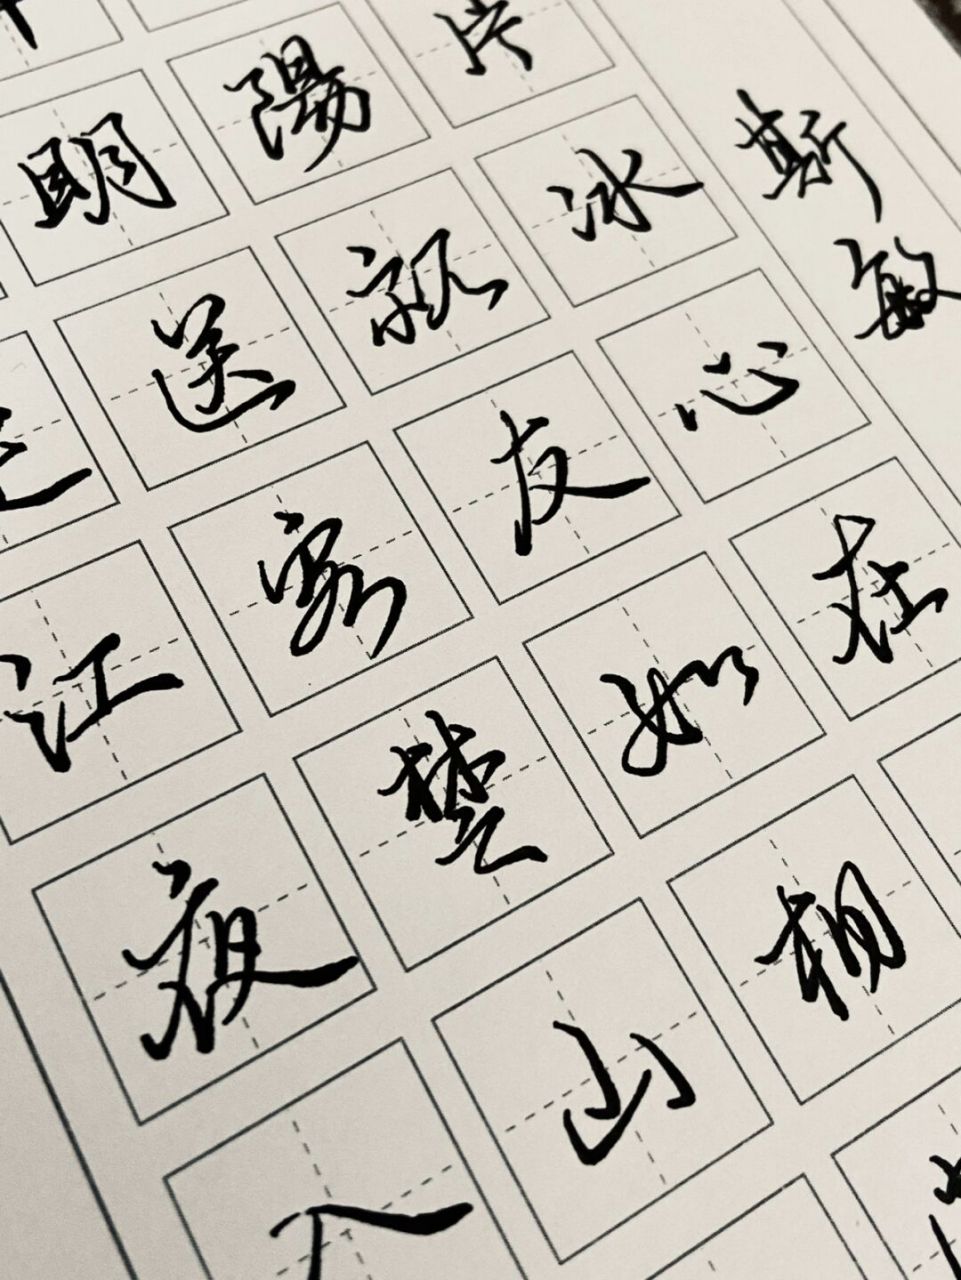 江夜入
明送客楚山
陽親友如相
片冰心在
斯敏